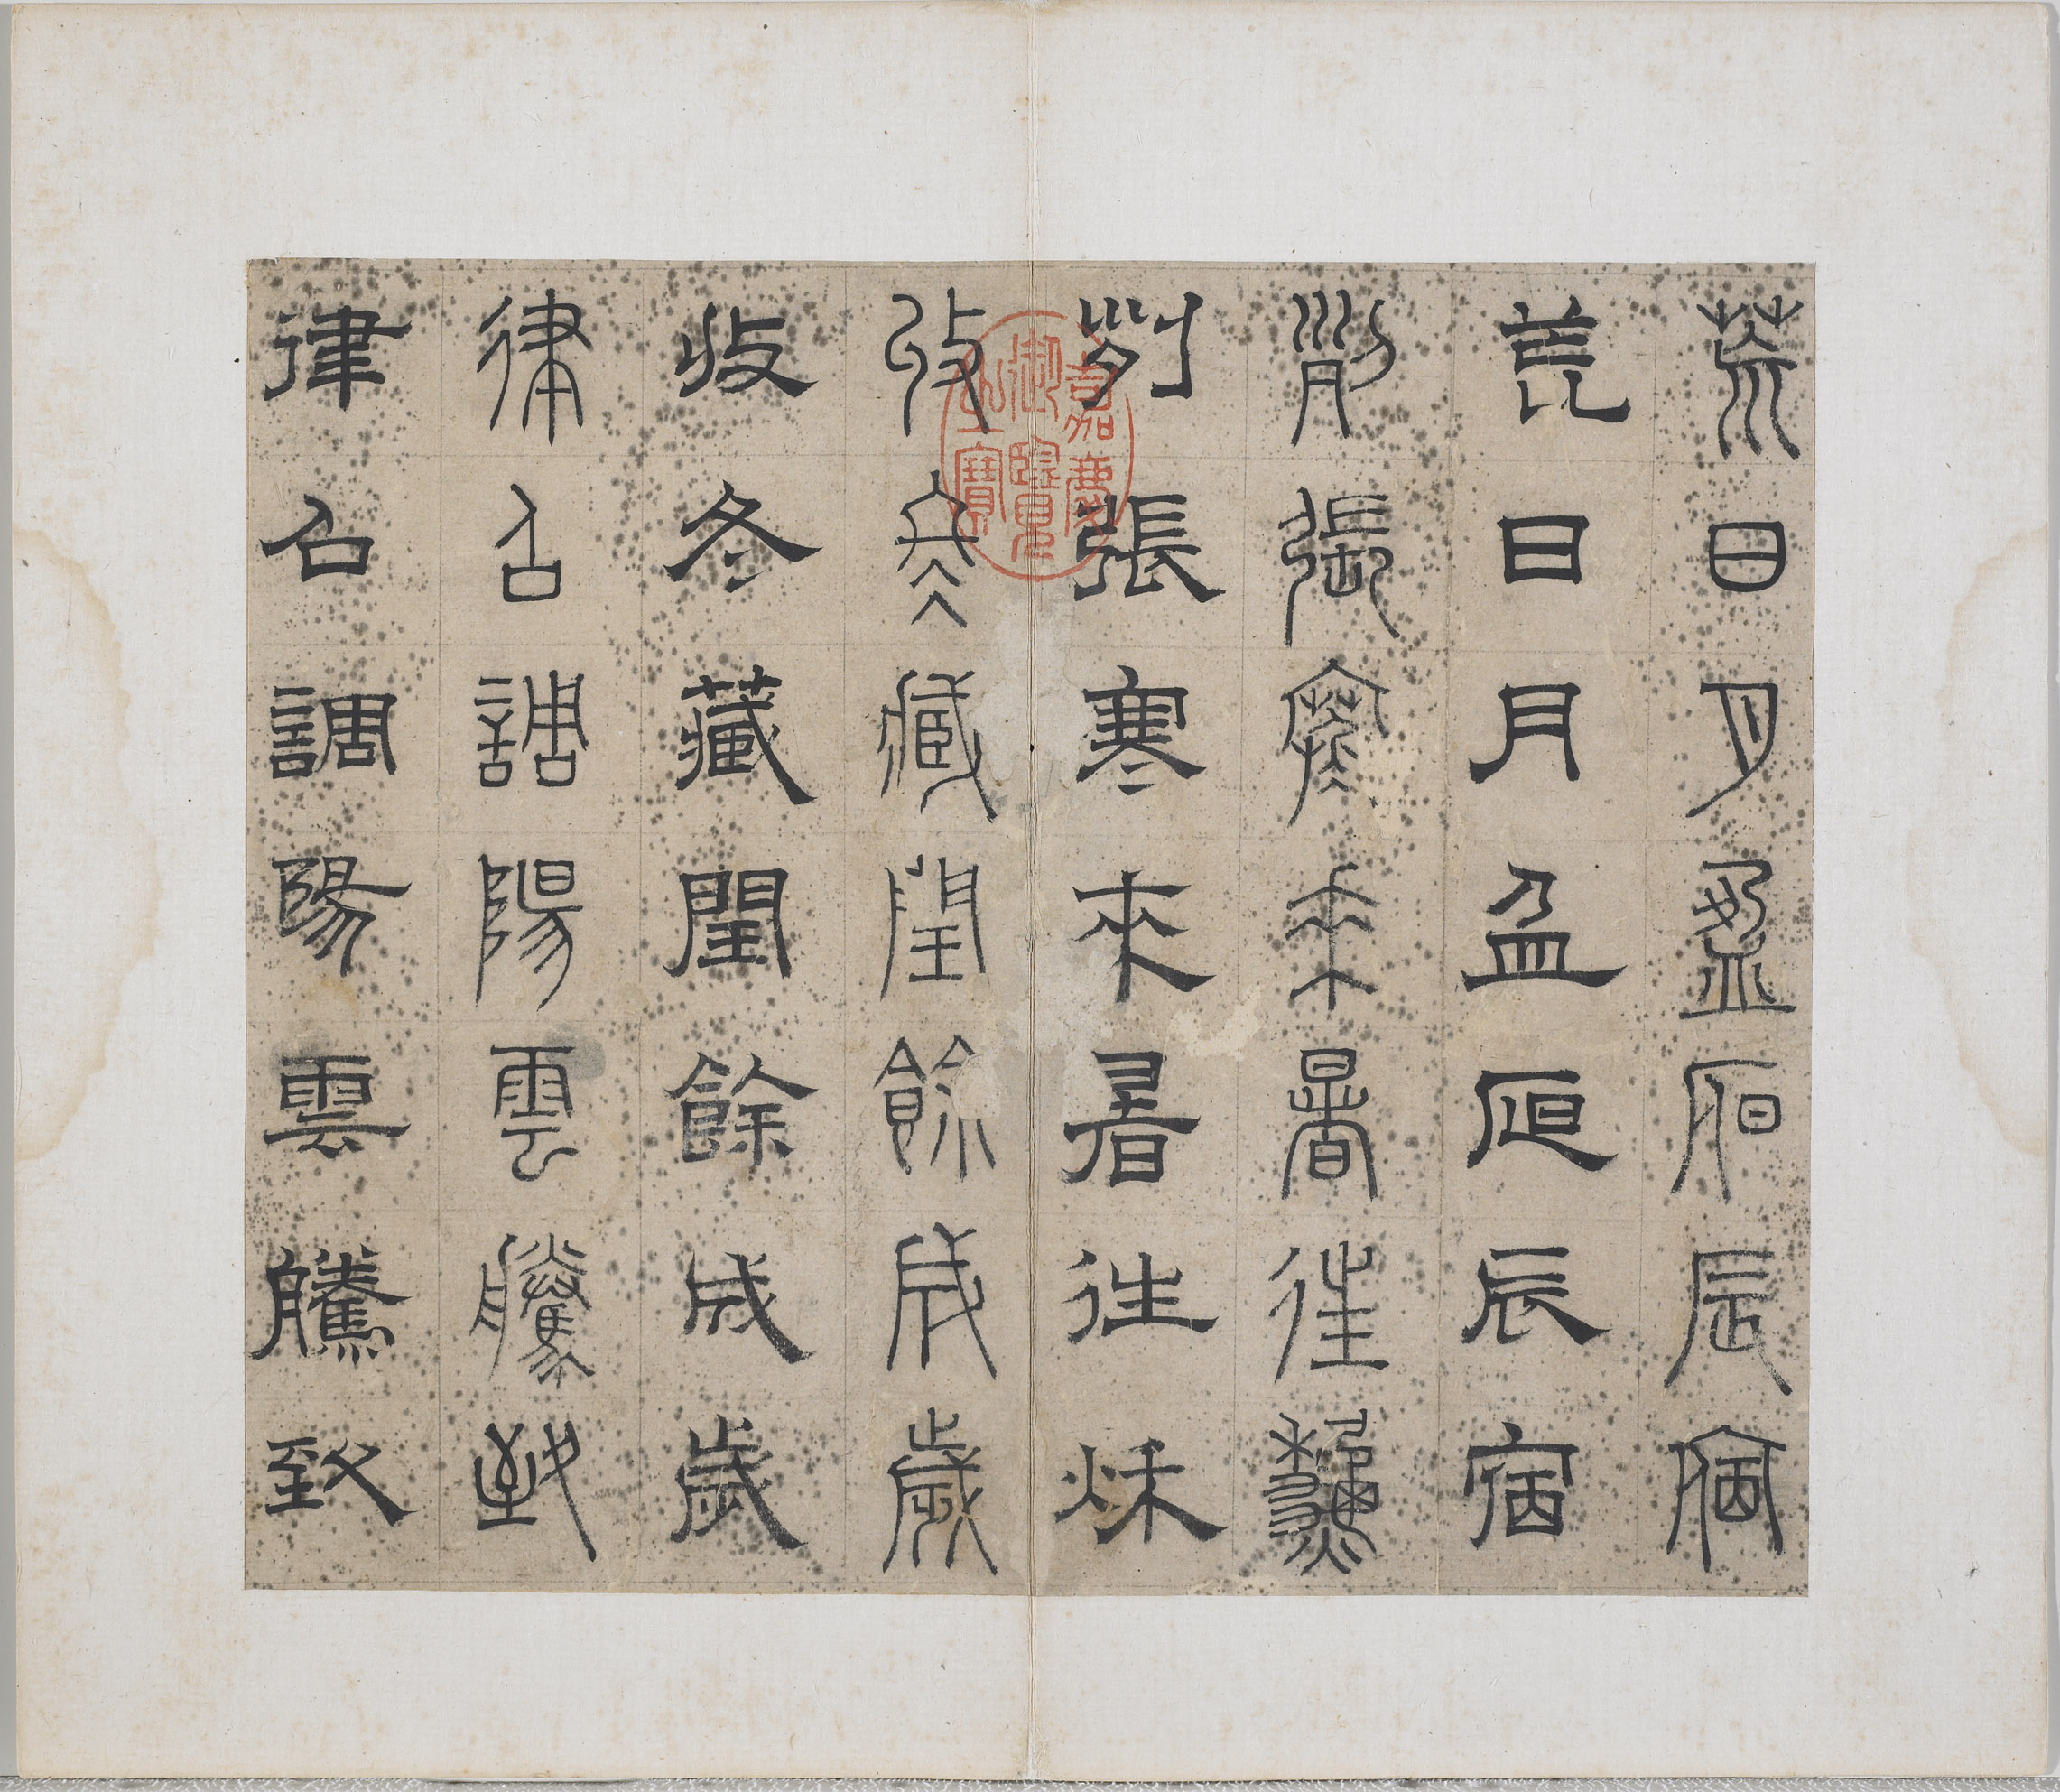 荒日月盈昃辰宿
荒日月盈昃辰宿
列張寒來暑往秋
列張寒來暑往秋
收冬藏閏餘成歲
收冬藏閏餘成歲
律召調陽雲騰致
律召調陽雲騰致
嘉慶御覽之寶